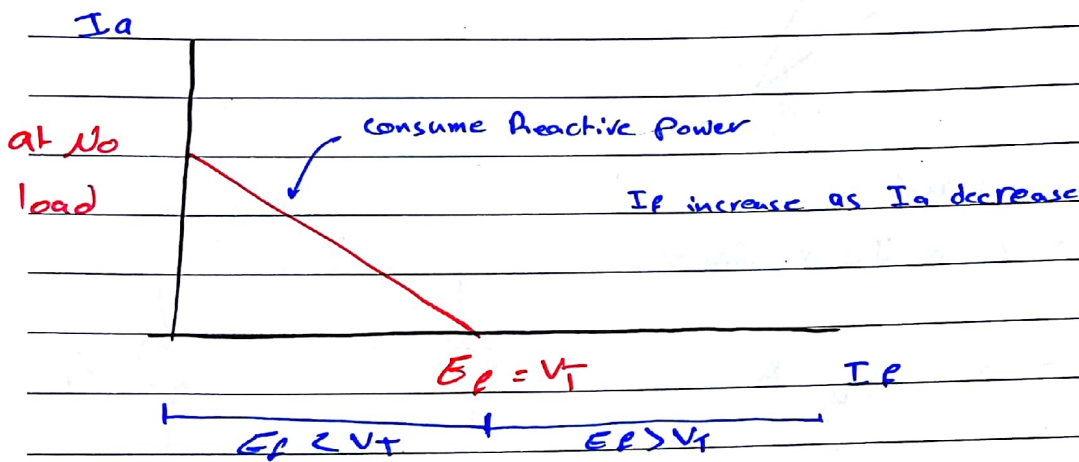 Ia
at No
load
consume Reactive power
If increase as Ia decrease
Ef = VT
If
Ef < VT
Ef > VT